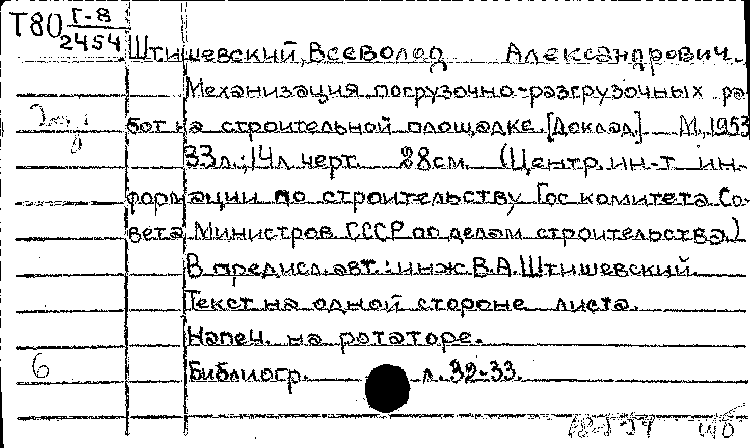 Т80 Г-8
2454
Штишевский, Всеволод Александрович.
Механизация погрузочно-разгрузочных ра-
бот на строительной площадке. [Доклад] М., 1953
33 л.; 14 л. черт. 28 см. (Центр. ин-т ин-
формации по строительству Гос. комитета Со-
вета Министров СССР по делам строительства.)
В предисл. авт.: инж. В.А. Штишевский.
Текст на одной стороне листа.
Напеч. на ротаторе.
6
Библиогр. л. 32-33.